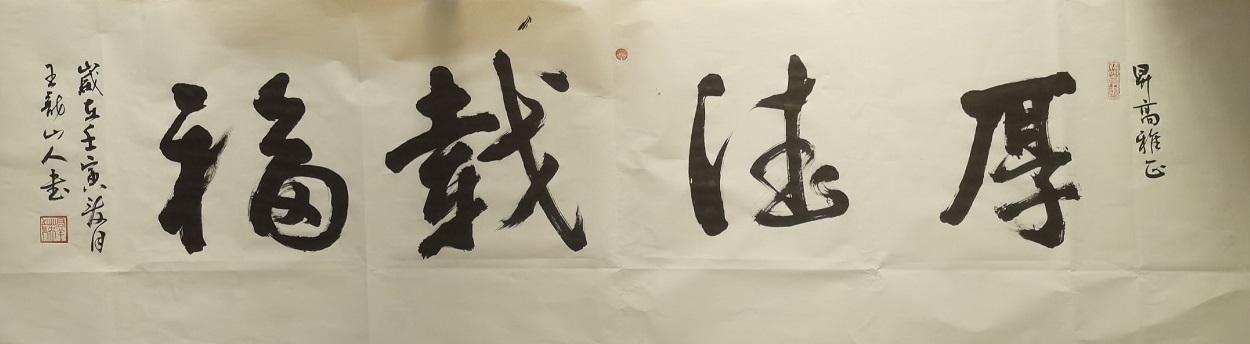 昇高雅正
厚德載福
歲在壬寅癸月
王龍山人書